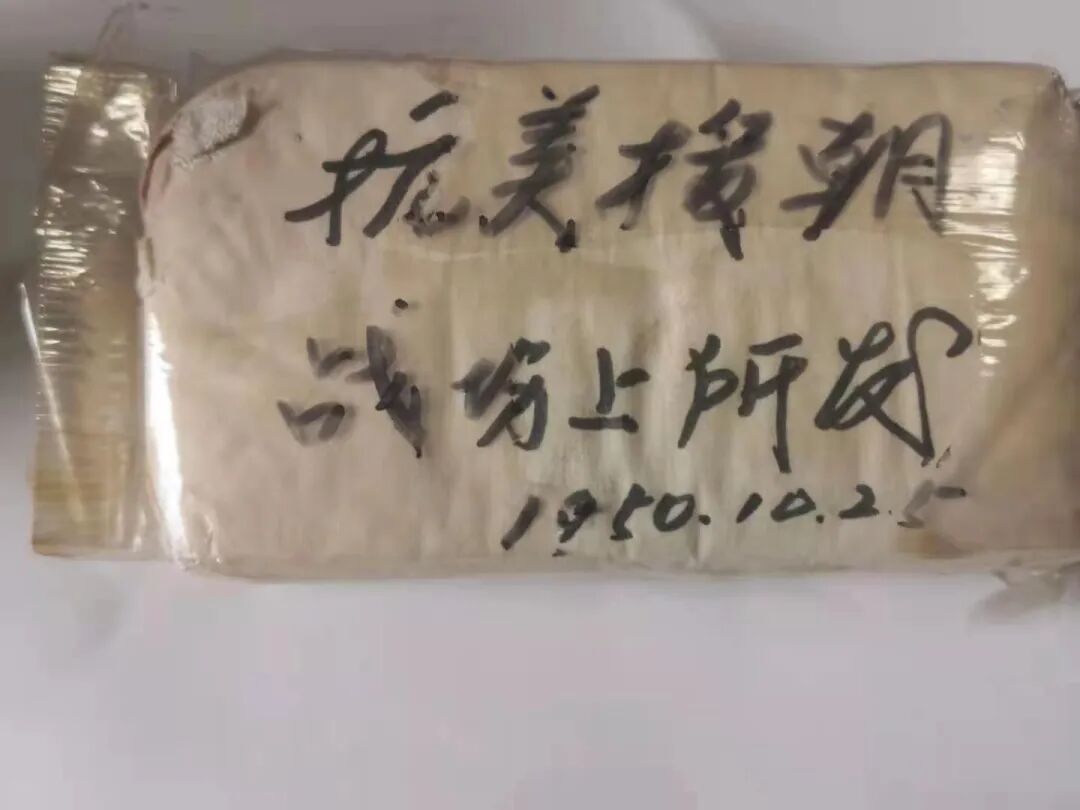 抗美援朝
战场上所发
1950.10.25